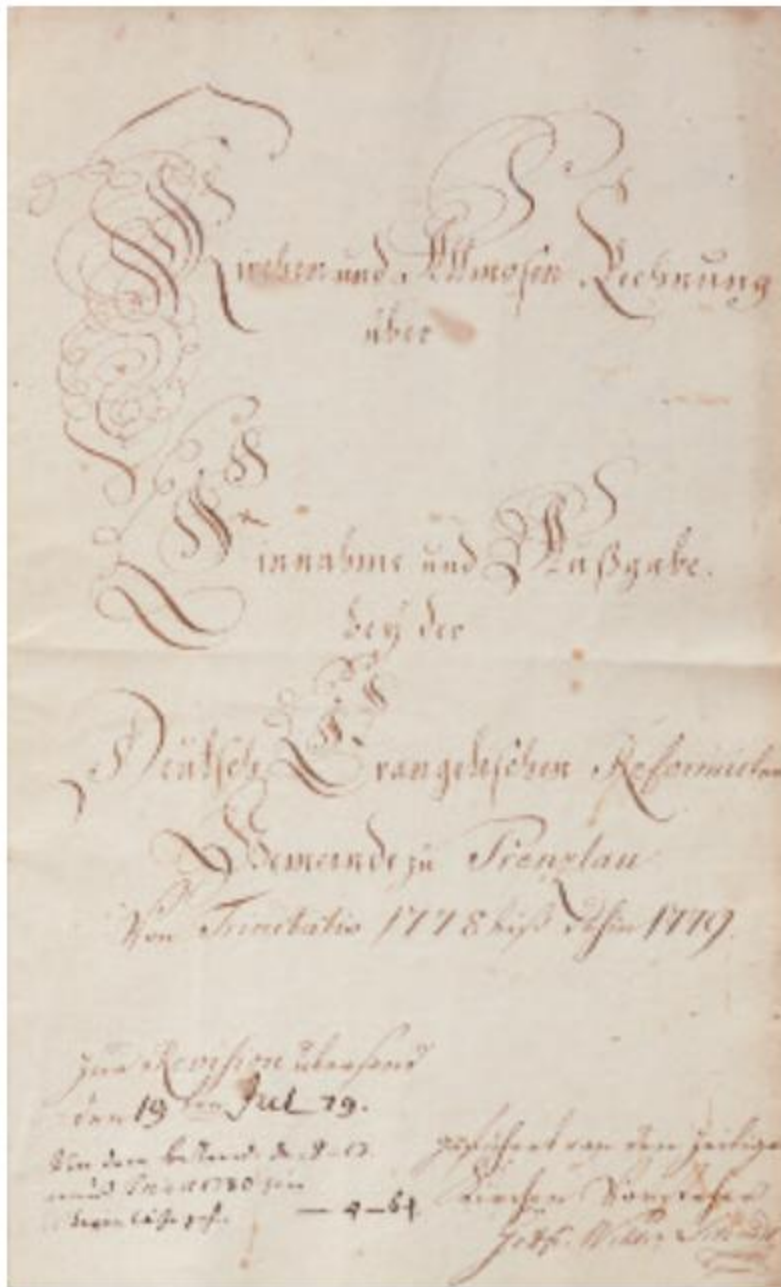 Kirchen und Allmosen Rechnung
über
Einnahme und Außgabe.
bey der
Deütsch Evangelischen Reformirten
Gemeinde zu Prenzlau
Von Trinitatis 1778 biß dahin 1779.
zur Revision übersand
den 19 ten Jul 79.
Von dem
und
geführet von dem zeitigen
Kirchen Vorsteher